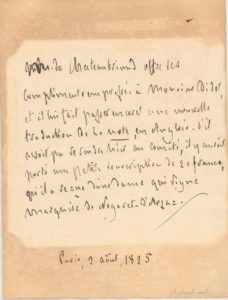 de Chateaubriand offre ses
compliments empressés à Monsieur Didot,
et il lui fait passer encore une nouvelle
traduction de la note, en Anglais. S'il
avoit pu se rendre hier au comité, il y auroit
porté une petite souscription de 20 francs,
qu'il a reçue d'une dame qui signe
marquise de Nogaret
Paris, 2 août, 1825.